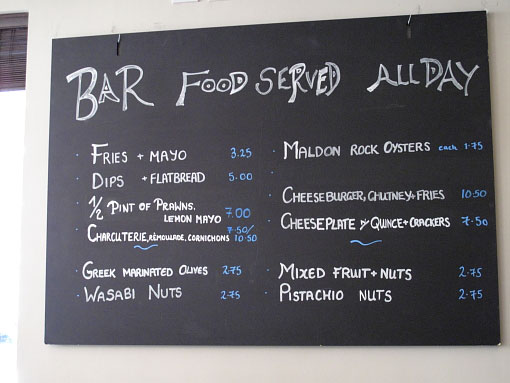 BAR FOOD SERVED ALL DAY
FRIES + MAYO 3.25
DIPS + FLATBREAD 5.00
1/2 PINT OF PRAWNS,
LEMON MAYO 7.00
CHARCUTERIE, REMOULADE, CORNICHONS 7.50/
10.50
GREEK MARINATED OLIVES 2.75
WASABI NUTS 2.75
MALDON ROCK OYSTERS each 1.75
CHEESEBURGER, CHUTNEY + FRIES 10.50
CHEESEPLATE w/ QUINCE + CRACKERS 7.50
MIXED FRUIT + NUTS 2.75
PISTACHIO NUTS 2.75